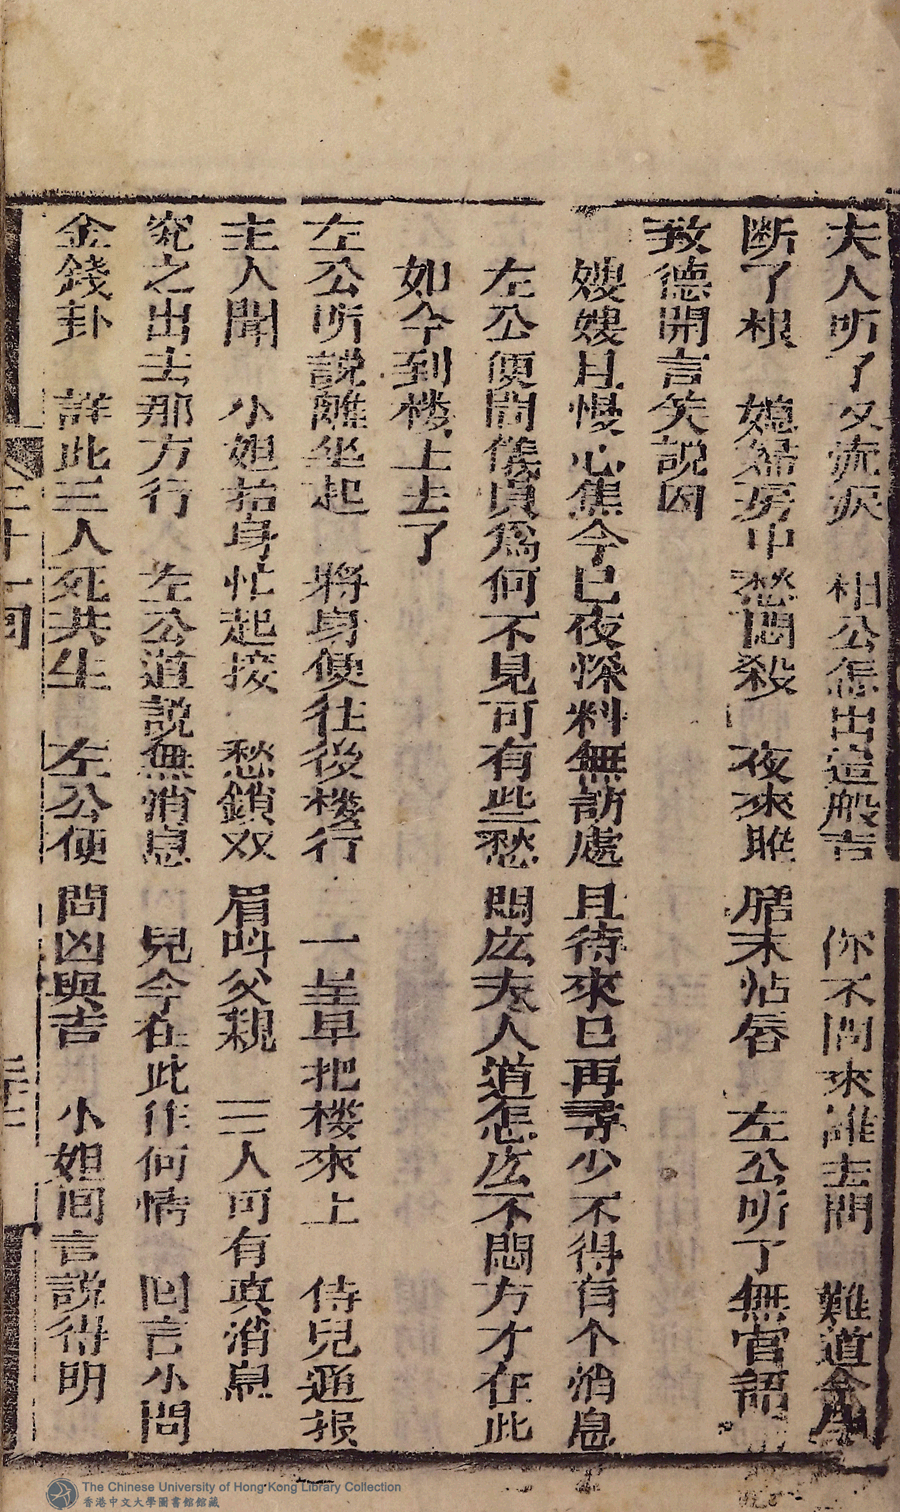 夫人听了又流淚　相公怎出這般言　你不問來誰去問　難道金
断了根　媳婦房中愁悶殺　夜來睢膳末怗唇　左公听了無官語
致德開言笑説因
嫂嫂且慢心焦今已夜深料無訪處且待來日再尋少不得有个消息
左公便問儀貞爲何不見可有些愁悶庅夫人道怎庅不悶方才在此
如今到楼上去了
左公听説離坐起　將身便往後楼行　一呈早把楼來上　侍兒通报
主人聞　小姐抬身忙起接　愁鎖双眉呌父親　三人可有真消息
究之出去那方行　左公道説無消息　兒今在此作何情　回言小問
金錢卦　詳此三人死共生　左公便問凶與吉　小姐囬言説得明
三十一回
The Chinese University of Hong Kong Library Collection
香港中文大學圖書館館藏